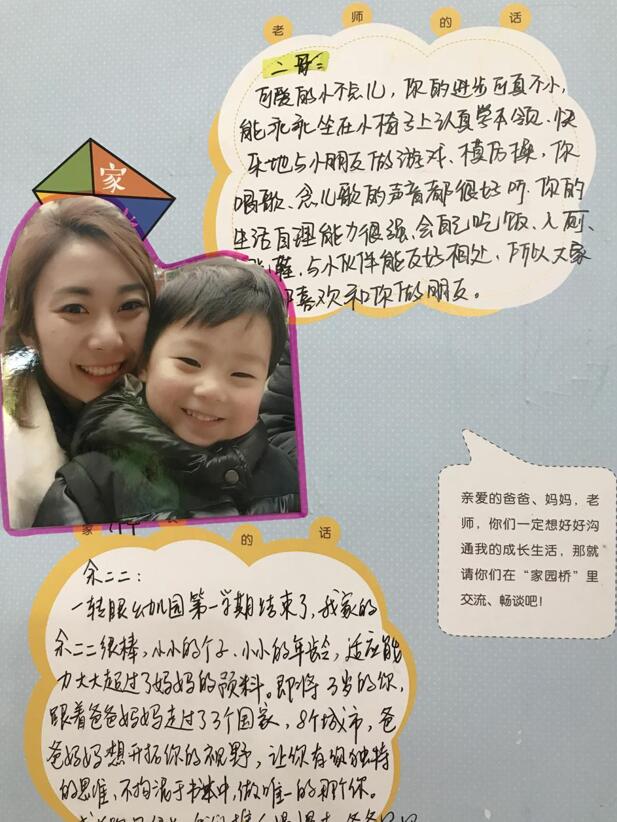 老师的话
二哥：
可爱的小不点儿，你的进步可真不小，
能乖乖坐在小椅子上认真学本领、快
乐地与小朋友做游戏、模仿操，你
唱歌、念儿歌的声音都很好听，你的
生活自理能力很强、会自己吃饭、入厕、
鞋，与小伙伴能友好相处，所以大家
喜欢和你做朋友。
家
亲爱的爸爸、妈妈，老
师，你们一定想好好沟
通我的成长生活，那就
请你们在“家园桥”里
交流、畅谈吧！
家 的话
余二二：
一转眼幼儿园第一学期结束了，我家的
余二二很棒，小小的个子、小小的年龄，适应能
力大大超过了妈妈的预料。即将3岁的你，
跟着爸爸妈妈走过了3个国家，8个城市，爸
爸妈妈想开拓你的视野，让你有做独特
的思维，不拘泥于书本中，做唯一的那个你。